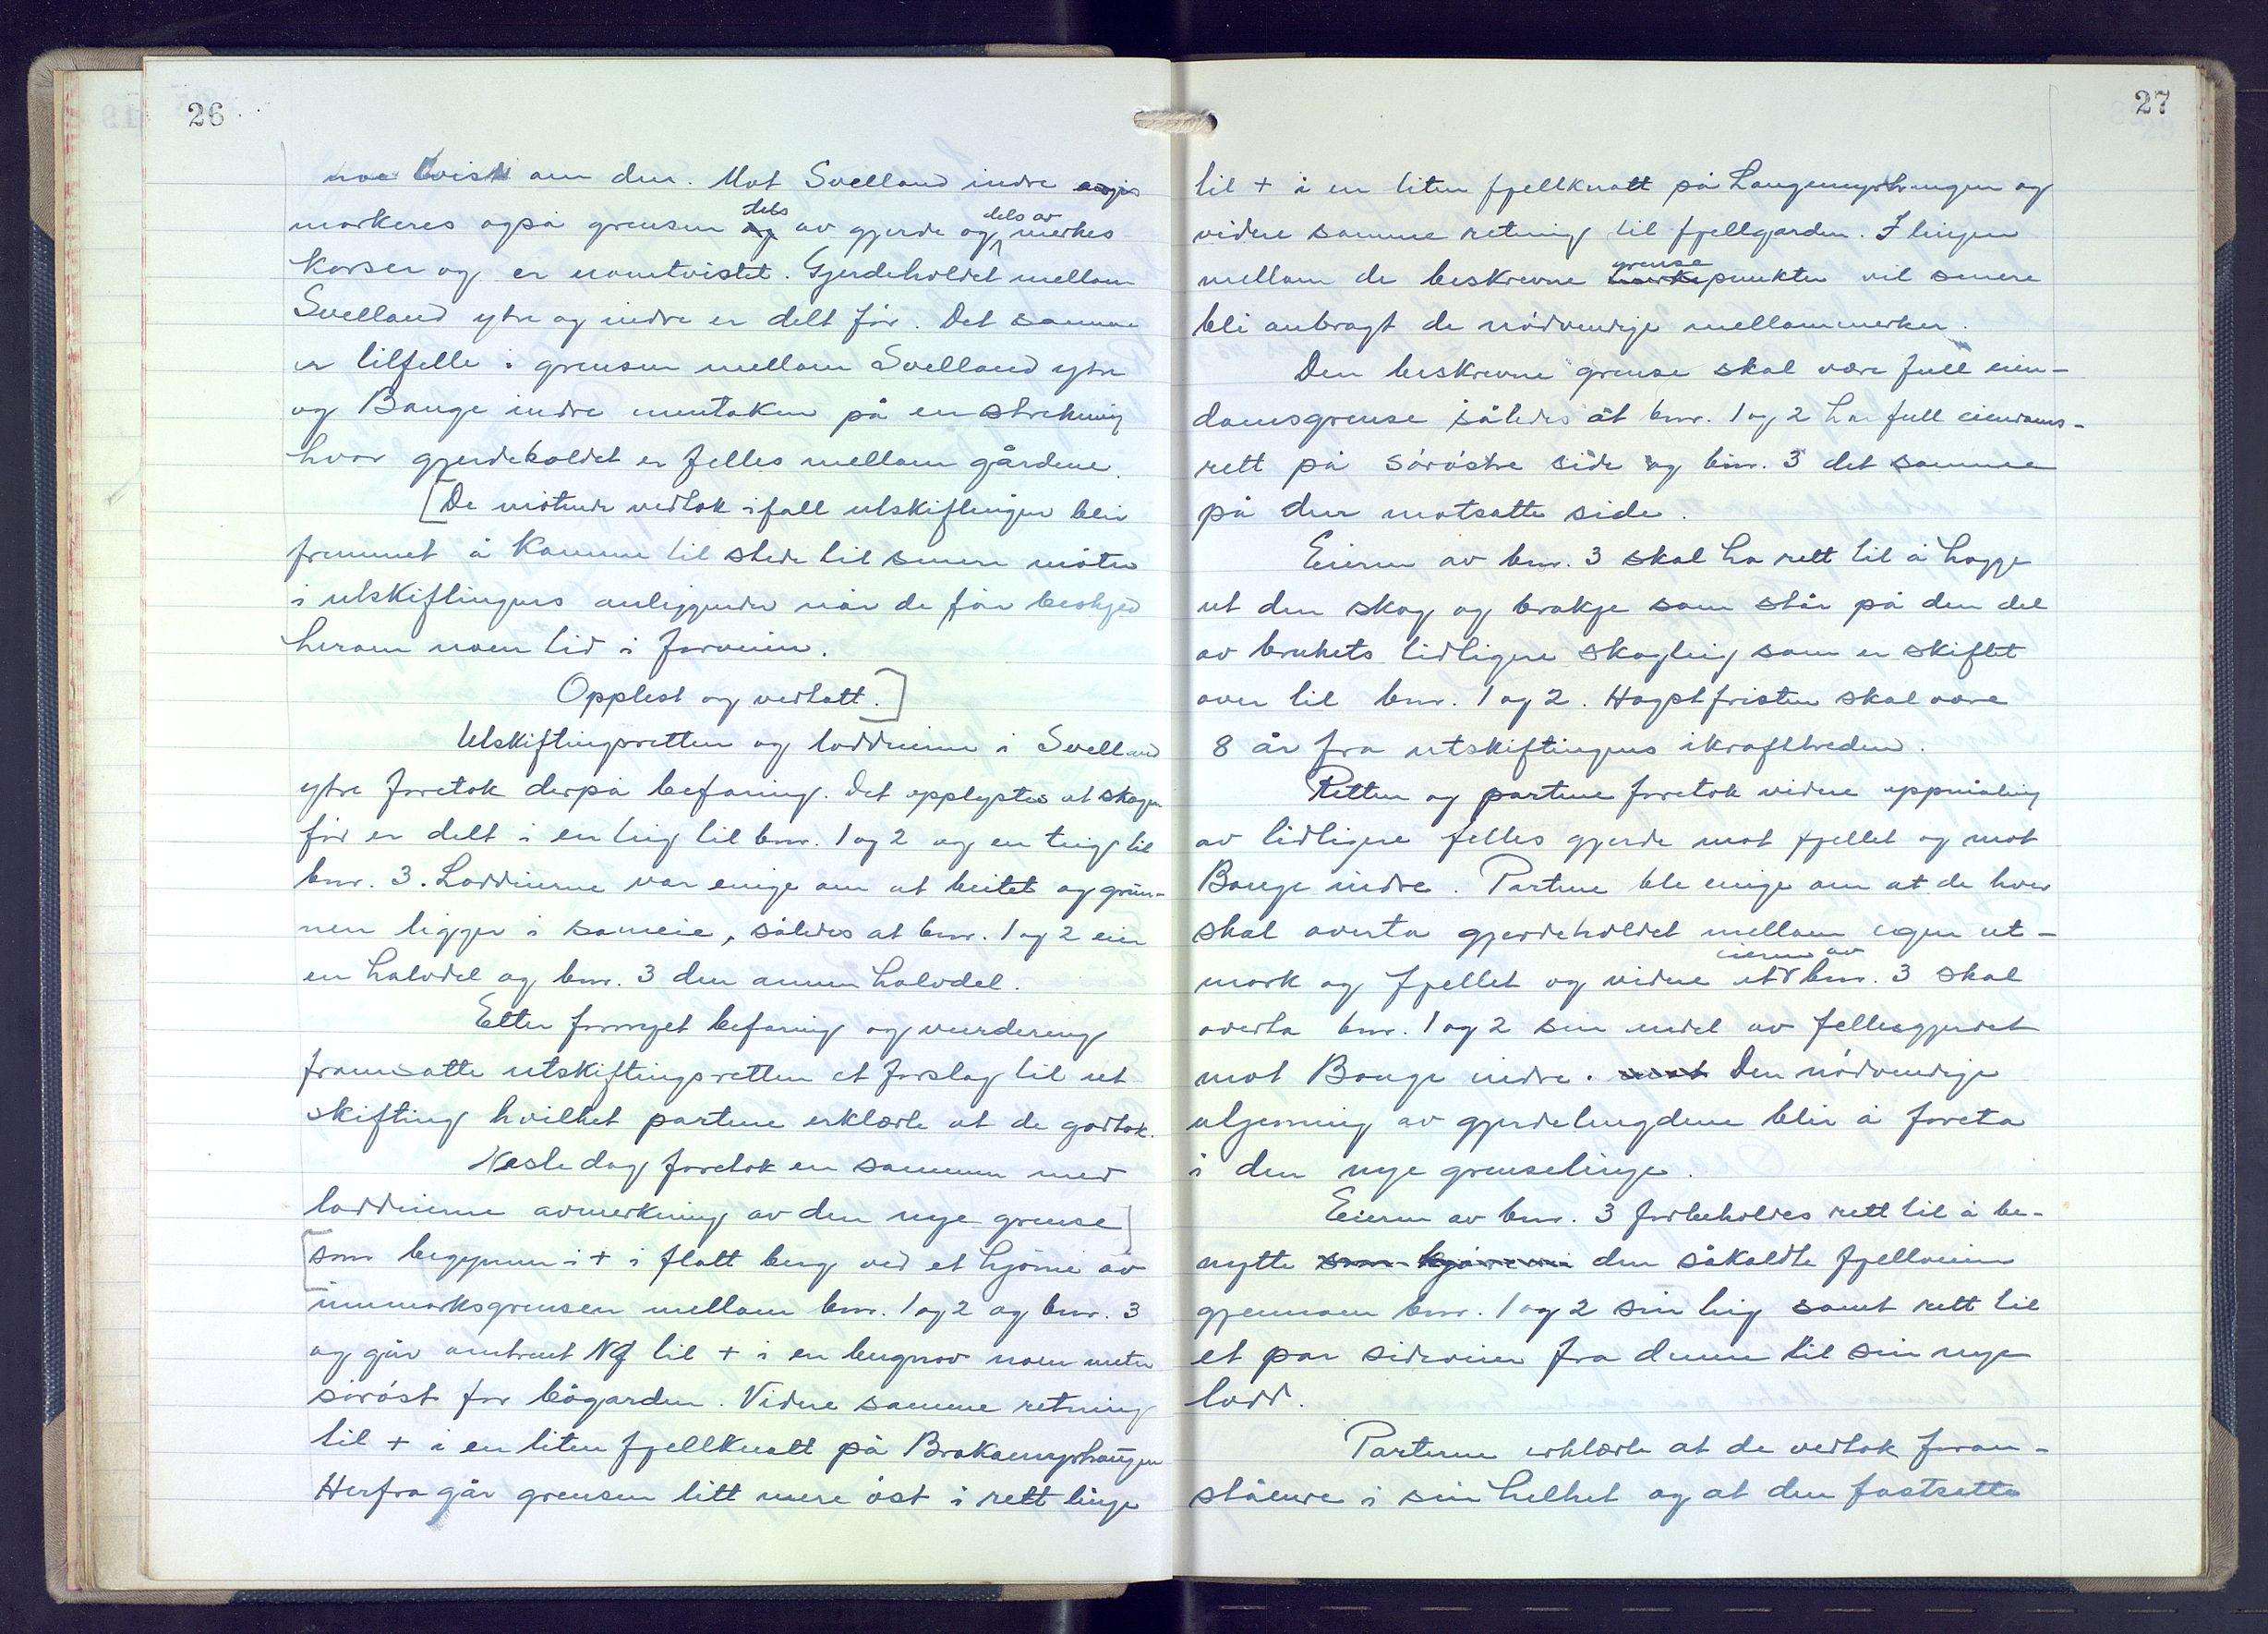 26
noe tvist om den. Mot Svelland indre
markeres også grensen dels av gjerde og dels av merkes
korser og er uomtvistet. Gjerdeholdet mellom
Svelland ytre og indre er delt för. Det samme
er tilfelle i grensen mellom Svelland ytre
og Bauge indre unntaken på en strekning
hvor gjerdeholdet er felles mellom gårdene.
[De mötende vedtok ifall utskiftingen blir
fremmet å komme til stede til senere möter
i utskiftingens anliggender når de får beskjed
herom noen tid i forveien.
Opplest og vedtatt.]
Utskiftingsretten og loddeierne i Svelland
ytre foretok derpå befaring. Det opplystes at skogen
för er delt i en teig til bnr. 1 og 2 og en teig til
bnr. 3. Loddeierne var enige om at beitet og grun-
nen ligger i sameie, således at bnr. 1 og 2 eier
en halvdel og bnr. 3 den annen halvdel.
Etter fornyet befaring og vurdering
fremsatte utskiftingsretten et forslag til ut
skifting hvilket partene erklærte at de godtok.
Neste dag foretok en sammen med
loddeierne avmerkning av den nye grense]
[som begynner i + i flatt berg ved et hjörne av
innmarksgrensen mellom bnr. 1 og 2 og bnr. 3
og går omtrent til + i en bergnov noen meter
söröst for bögarden. Videre samme retning
til + i en liten fjellknatt på Brakamyrhaugen
Herfra går grensen litt mere öst i rett linje
27
til + i en liten fjellknatt på Langemyrhaugen og
videre samme retning til fjellgarden. I linjen
mellom de beskrevne grensepunkter vil senere
bli anbragt de nödvendige mellommerker.
Den beskrevne grense skal være full eien-
domsgrense således at bnr. 1 og 2 har full eiendoms-
rett på söröstre side og bnr. 3 det samme
på den motsatte side.
Eieren av bnr. 3 skal ha rett til å hogge
ut den skog og brakje som står på den del
av brukets tidligere skogteig som er skiftet
over til bnr. 1 og 2. Hogstfristen skal være
8 år fra utskiftingens ikrafttreden.
Retten og partene foretok videre oppmåling
av tidligere felles gjerde mot fjellet og mot
Bauge indre. Partene ble enige om at de hver
skal overta gjerdeholdet mellom egen ut-
mark og fjellet og videre at eieren av bnr. 3 skal
overta bnr. 1 og 2 sin andel av fellesgjerdet
mot Bauge indre. mot Den nödvendige
utjevning av gjerdelengdene blir å foreta
i den nye grenselinje.
Eieren av bnr. 3 forbeholdes rett til å be-
nytte som kjörevei den såkaldte fjellveien
gjennom bnr. 1 og 2 sin teig samt rett til
et par sideveier fra denne til sin nye
lodd.
Partene erklærte at de vedtok foran-
stående i sin helhet og at den fastsatte